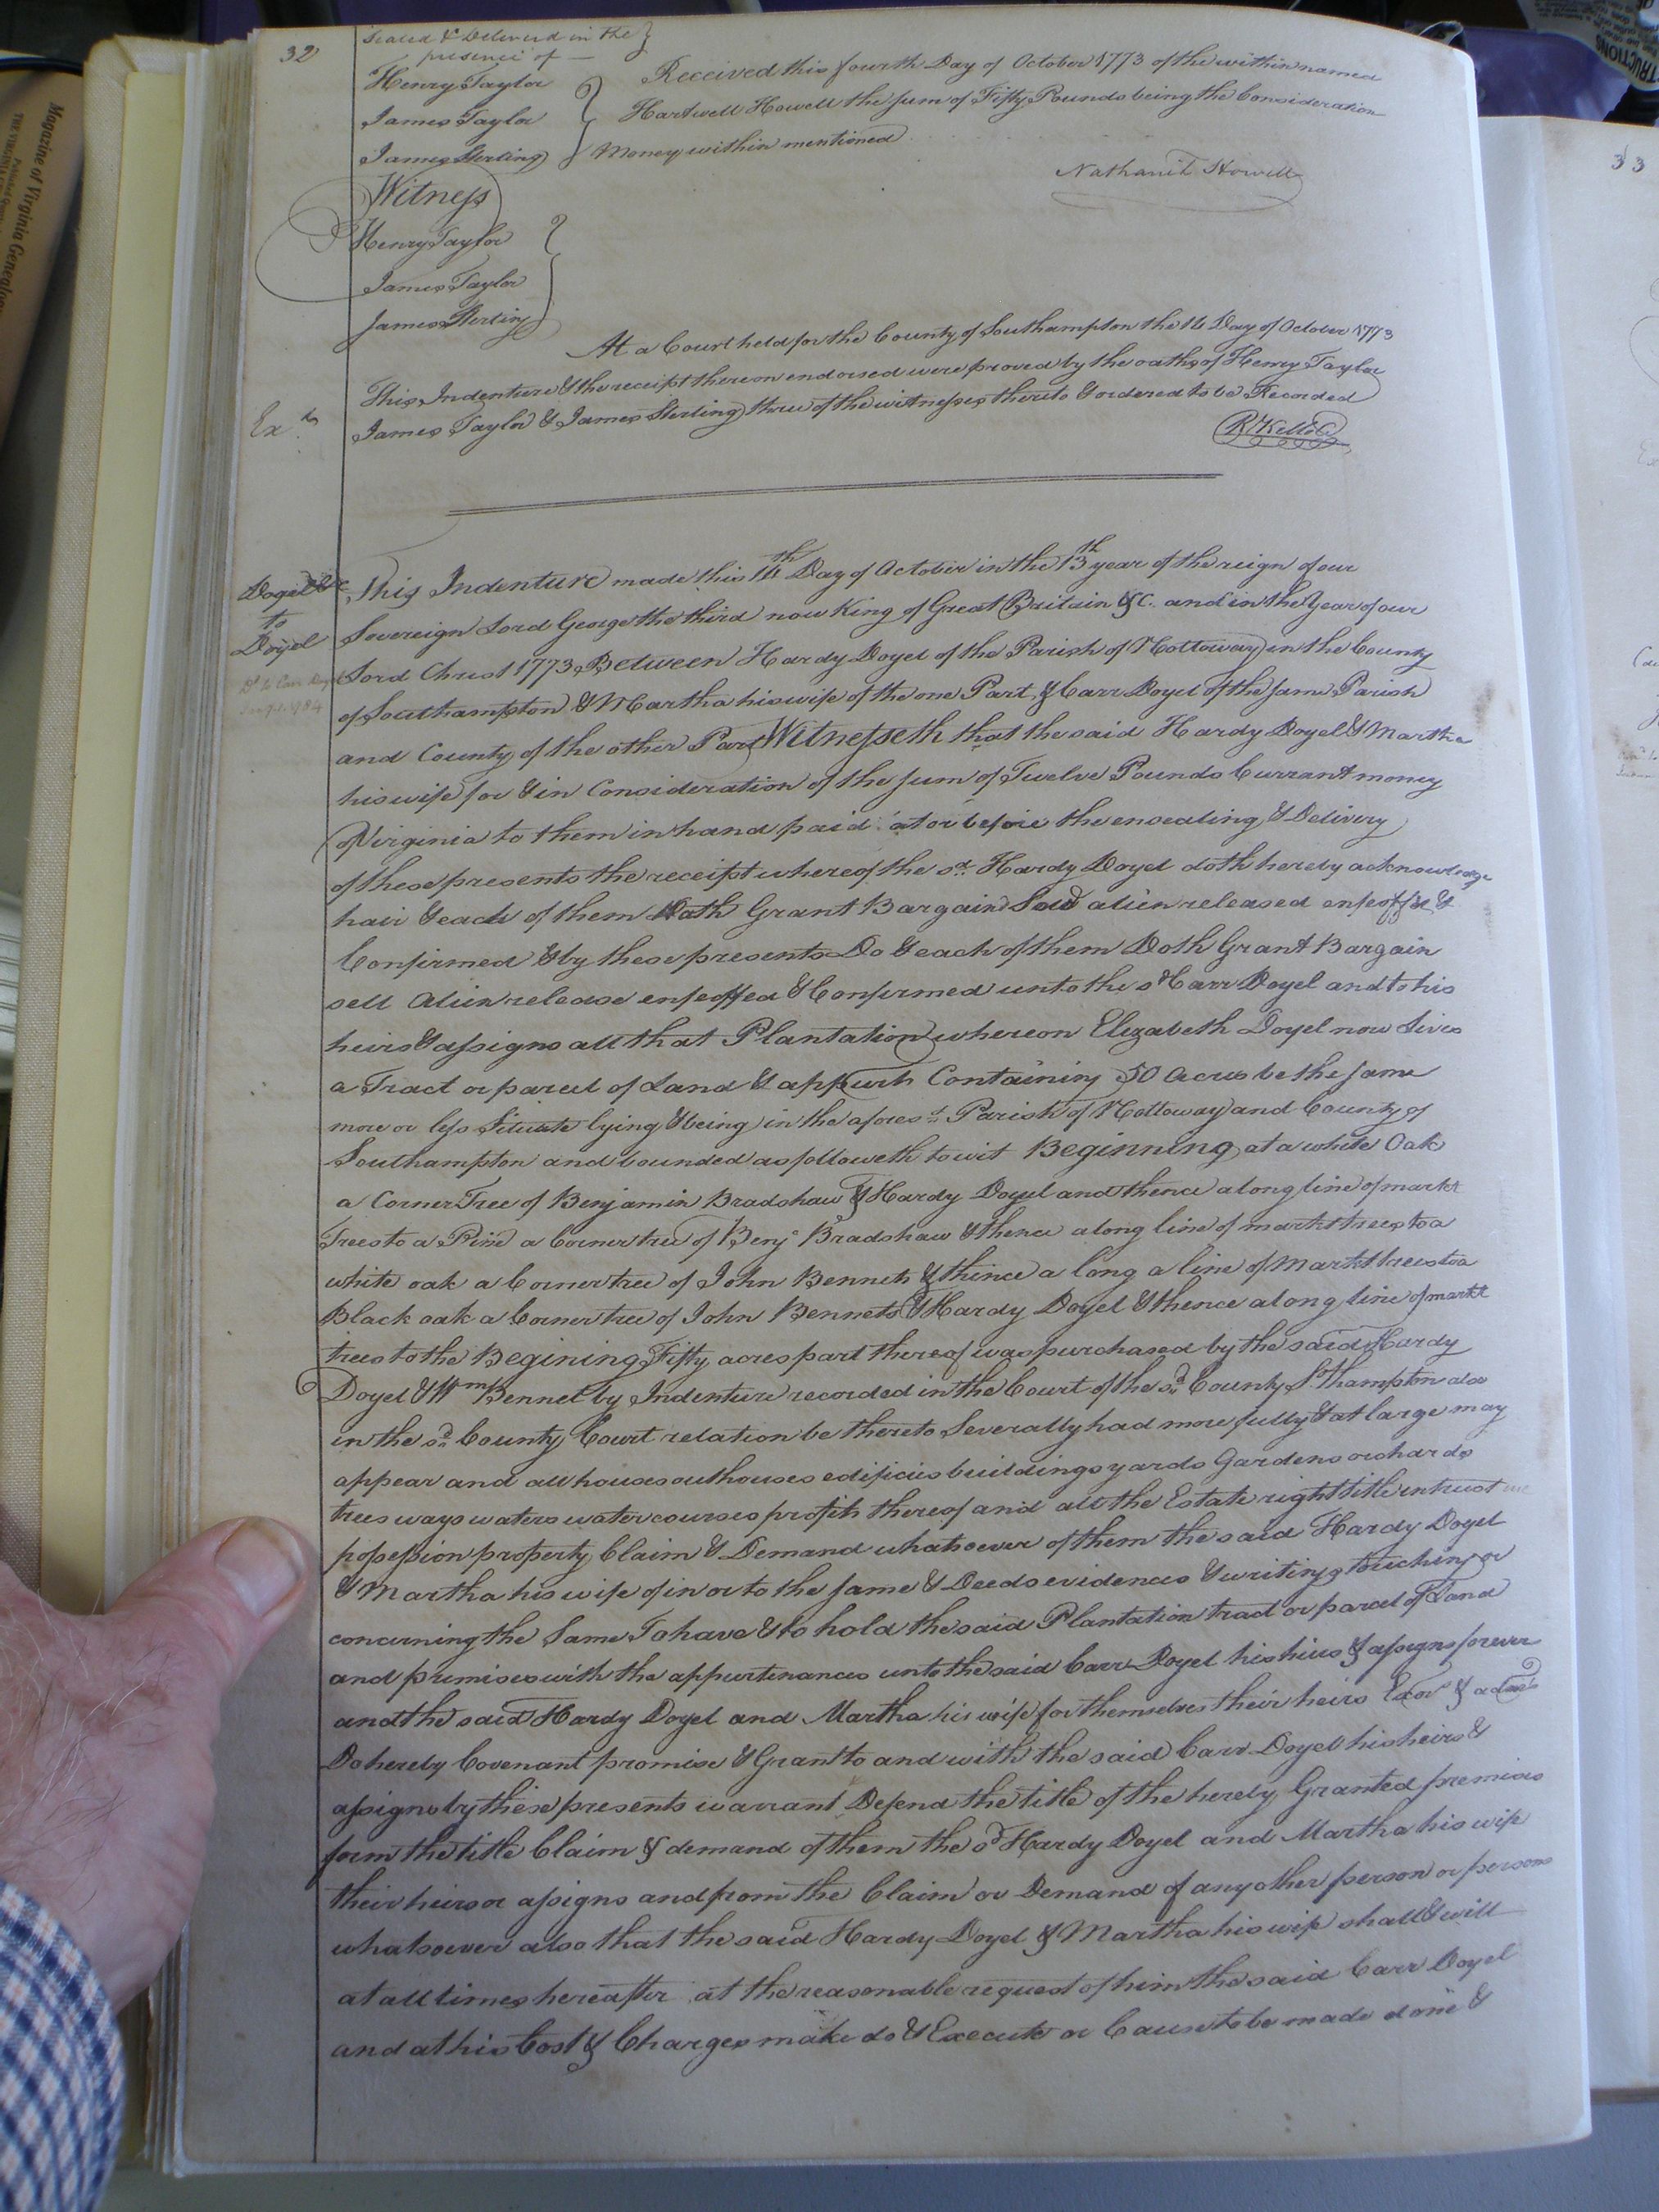 32
Sealed & Delivered in the
presence of —
Henry Taylor
James Taylor
James Sterling
Received this fourth Day of October 1773 of the within named
Hartwell Howell the sum of Fifty Pounds being the Consideration
Money within mentioned
Nathaniel Howell
Witness
Henry Taylor
James Taylor
James Sterling
At a Court held for the County of Southampton the 14 Day of October 1773
This Indenture & the receipt thereon endorsed were proved by the oaths of Henry Taylor
James Taylor & James Sterling three of the witnesses thereto & ordered to be Recorded
Ex.d
Doyel &c
to
Doyel
This Indenture made this 14th Day of October in the 13th year of the reign of our
Sovereign Lord George the third now King of Great Britain &c. and in the Year of our
Lord Christ 1773, Between Hardy Doyel of the Parish of Nottoway in the County
of Southampton & Martha his wife of the one Part, & Carr Doyel of the same Parish
and County of the other Part Witnesseth that the said Hardy Doyel & Martha
his wife for & in Consideration of the sum of Twelve Pounds Currant money
of Virginia to them in hand paid at or before the ensealing & Delivery
of these presents the receipt whereof the sd. Hardy Doyel doth hereby acknowledge
hair & each of them Hath Grant Bargain Sold alien released enfeoffed &
Confirmed & by these presents Do & each of them Doth Grant Bargain
sell Alien release enfeoffed & Confirmed unto the sd Carr Doyel and to his
heirs & assigns all that Plantation whereon Elizabeth Doyel now Lives
a Tract or parcel of Land & appurts Containing 50 Acres be the same
more or less Situate lying & being in the afores.d Parish of Nottoway and County of
Southampton and bounded as followeth to wit Beginning at a white Oak
a Corner Tree of Benjamin Bradshaw & Hardy Doyel and thence along line of markt
Trees to a Pine a Corner tree of Benja Bradshaw & thence along line of markt trees to a
white oak a Corner tree of John Bennets & thince a long a line of Markt trees to a
Black oak a Corner tree of John Bennets & Hardy Doyel & thence along line of markt
trees to the Begining Fifty acres part thereof was purchased by the said Hardy
Doyel & Wm Bennet by Indenture recorded in the Court of the sd County S.thampton also
in the sd County Court relation be thereto Severally had more fully & at large may
appear and all houses outhouses edificies buildings yards Gardens orchards
trees ways waters water courses profits thereof and all the Estate right title intrust
possession property Claim & Demand whatsoever of them the said Hardy Doyel
& Martha his wife of in or to the same & Deeds evidences & writings touching or
concerning the Same To have & to hold the said Plantation tract or parcel of Land
and premises with the appurtenances unto the said Carr Doyel his heirs & assigns forever
and the said Hardy Doyel and Martha his wife for themselves their heirs Exors & admrs
Do hereby Covenant promise & Grant to and with the said Carr Doyel his heirs &
assigns by these presents warrant Defend the title of the hereby Granted premises
form the title Claim & demand of them the sd Hardy Doyel and Martha his wife
their heirs or assigns and from the Claim or Demand of any other person or persons
whatsoever also that the said Hardy Doyel & Martha his wife shall & will
at all times hereafter at the reasonable request of him the said Carr Doyel
and at his Cost & Charges make do & Execute or Cause to be made done &
33
Magazine of Virginia Genealogy